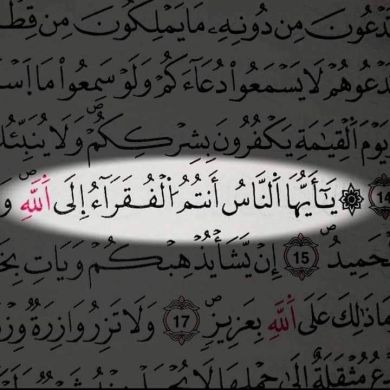 تَدْعُونَ مِن دُونِهِۦ مَا يَمْلِكُونَ مِن قِطْ
تَدْعُوهُمْ لَا يَسْمَعُوا۟ دُعَآءَكُمْ وَلَوْ سَمِعُوا۟ مَا ٱسْتَ
يَوْمَ ٱلْقِيَٰمَةِ يَكْفُرُونَ بِشِرْكِكُمْ ۚ وَلَا يُنَبِّئُكَ
14 ۞ يَٰٓأَيُّهَا ٱلنَّاسُ أَنتُمُ ٱلْفُقَرَآءُ إِلَى ٱللَّهِ ۖ وَ
ٱلْحَمِيدُ 15 إِن يَشَأْ يُذْهِبْكُمْ وَيَأْتِ بِخَ
وَمَا ذَٰلِكَ عَلَى ٱللَّهِ بِعَزِيزٍ 17 وَلَا تَزِرُ وَازِرَةٌ وِزْ
تَدْعُ مُثْقَلَةٌ إِلَىٰ حِمْلِهَا لَا يُحْمَلْ مِنْهُ شَىْءٌ وَلَوْ